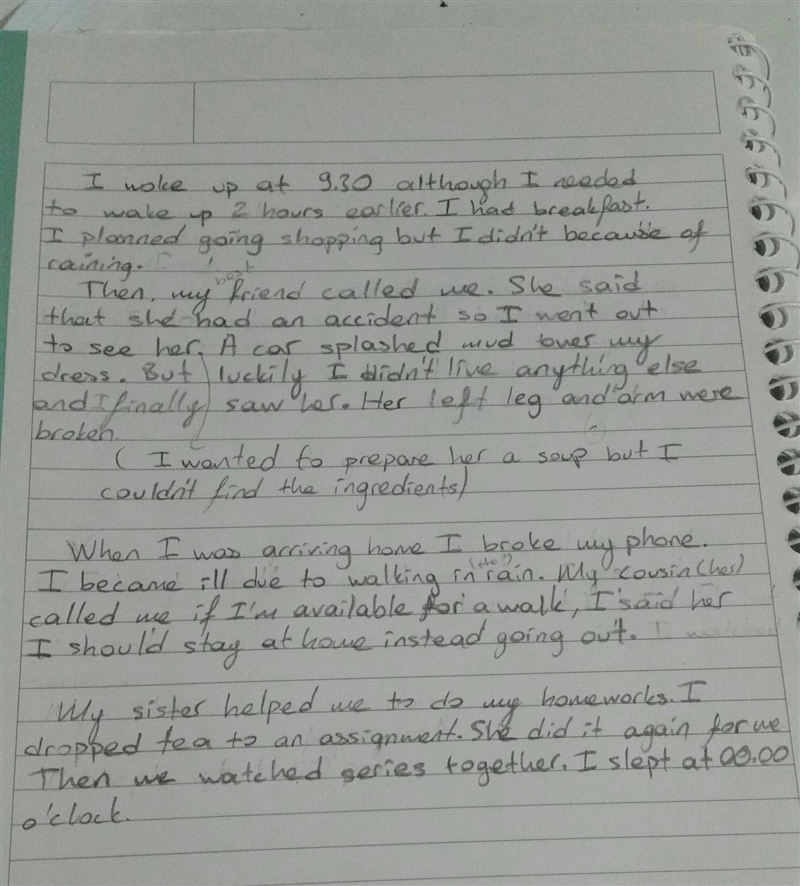 I woke up at 9.30 although I needed
to wake up 2 hours earlier. I had breakfast.
I planned going shopping but I didn't because of
raining.
best
Then, my friend called me. She said
that she had an accident so I went out
to see her. A car splashed mud over my
dress. But luckily I didn't live anything else
and I finally saw her. Her left leg and arm were
broken.
( I wanted to prepare her a soup but I
couldn't find the ingredients)
When I was arriving home I broke my phone.
(the?)
I became ill due to walking in rain. My cousin (her)
called me if I'm available for a walk, I said her
I should stay at home instead going out.
My sister helped me to do my homeworks. I
dropped tea to an assignment. She did it again for me
Then we watched series together. I slept at 00.00
o'clock.